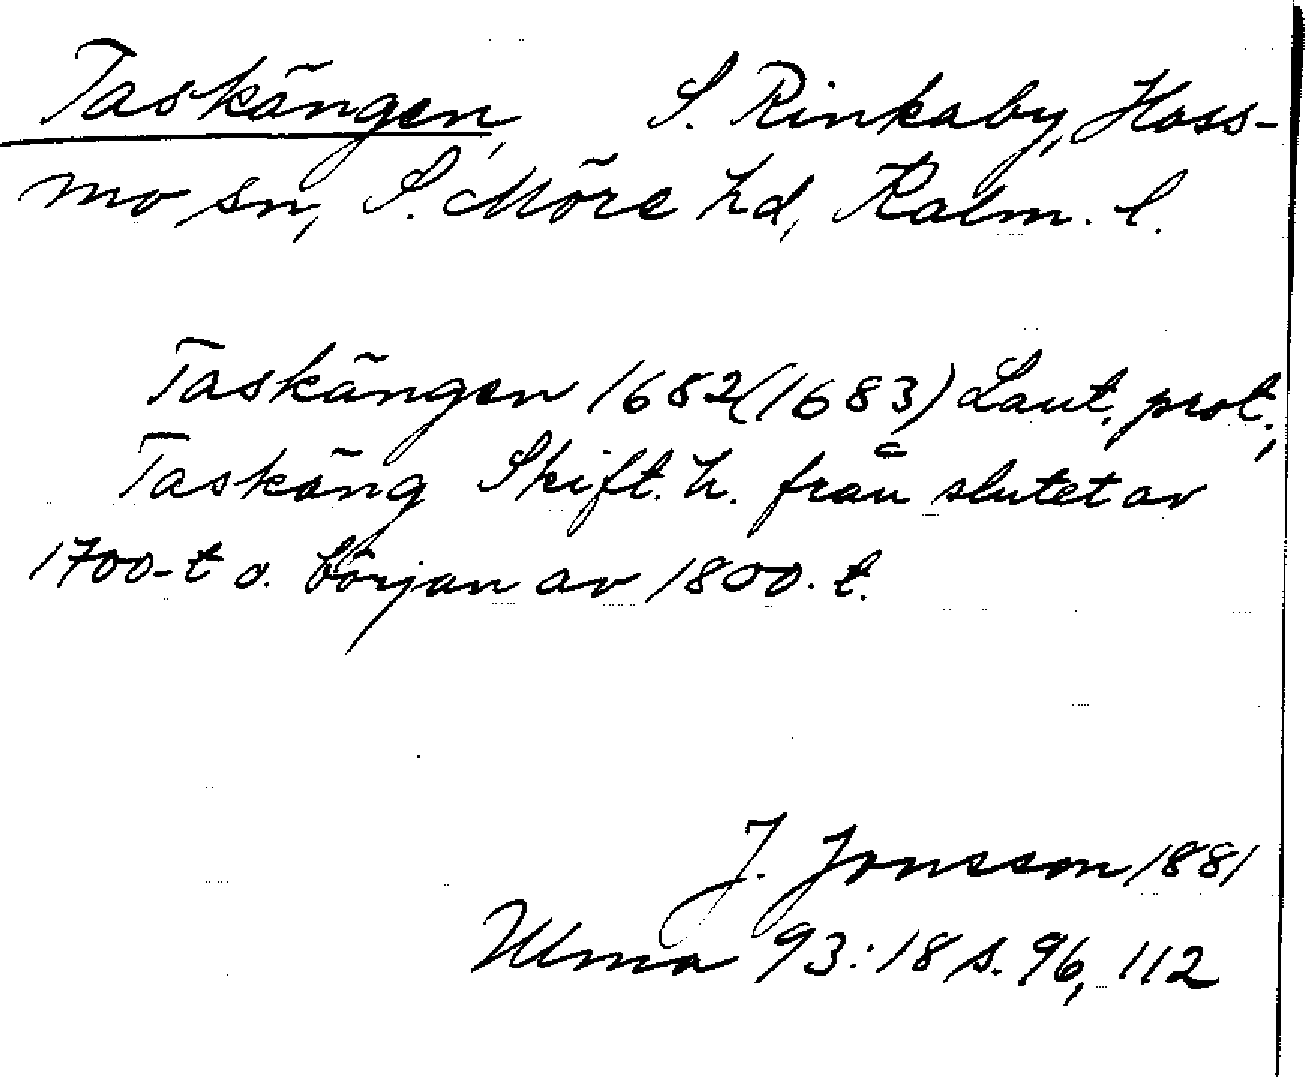 Taskängen, S. Rinkaby, Hoss-
mo sn, S. Möre hd, Kalm. l.
Taskängen 1682(1683) Lant. prot.;
Taskäng Skift. h. från slutet av
1700-t o. början av 1800-t.
J. Jonsson 1881
Ulma 93:18 s. 96, 112